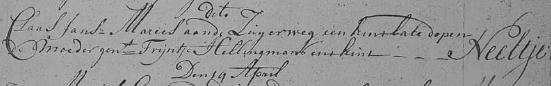 dito
Claas Jans Maries aande Zuyerweg een kint late dopen
de Moeder gent Trijntje Hellingmans een kint - - - Neeltje
Den 19 April